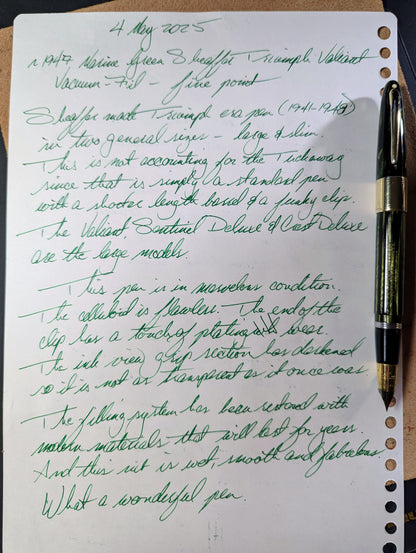 4 May 2025
~1947 Marine Green Sheaffer Triumph Valiant
Vacuum-Fil - fine point
Sheaffer made Triumph era pen (1941-1948)
in two general sizes - large & slim.
This is not accounting for the Tuckaway
since that is simply a standard pen
with a shorter length barrel & a funky clip.
The Valiant Sentinel Deluxe & Crest Deluxe
are the large models.
This pen is in marvelous condition.
The celluloid is flawless. The end of the
clip has a touch of plating wear.
The ink view grip section has darkened
so it is not as transparent as it once was.
The filling system has been restored with
modern materials that will last for years.
And this nib is wet, smooth and fabulous.
What a wonderful pen.